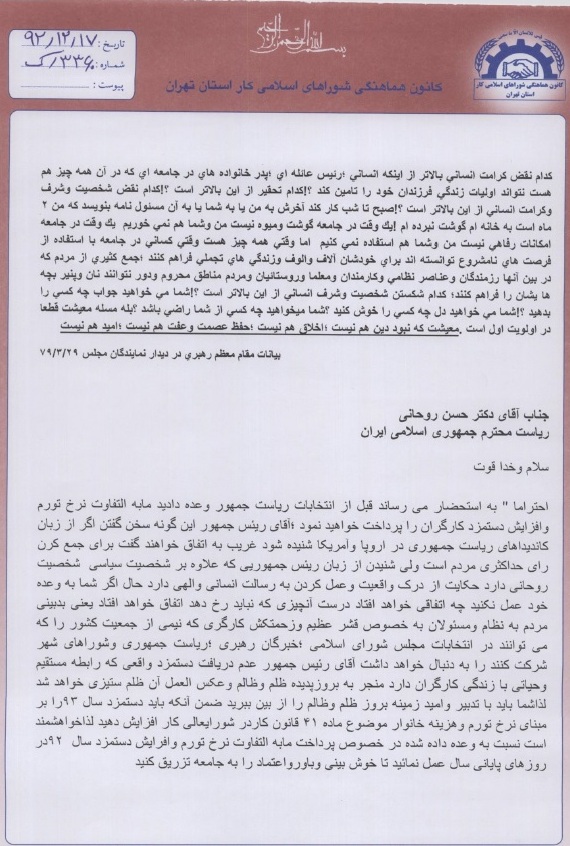 بسم الله الرحمن الرحیم
کانون هماهنگی شوراهای اسلامی کار استان تهران
کانون هماهنگی شوراهای اسلامی کار
استان تهران
تاریخ: ۹۲/۱۲/۱۷
شماره: ۳۳۶۰/ک
پیوست:
کدام نقض کرامت انساني بالاتر از اينکه انساني ؛رئيس عائله اي ؛پدر خانواده هاي در جامعه اي که در آن همه چيز هم
هست نتواند اوليات زندگي فرزندان خود را تامين کند ؟!کدام تحقير از اين بالاتر است ؟!کدام نقض شخصيت وشرف
وکرامت انساني از اين بالاتر است ؟!صبح تا شب کار کند آخرش به من يا به شما يا به آن مسئول نامه بنويسد که من ۲
ماه است به خانه ام گوشت نبرده ام !يك وقت در جامعه گوشت وميوه نيست من وشما هم نمي خوريم يك وقت در جامعه
امکانات رفاهي نيست من وشما هم استفاده نمي کنيم اما وقتي همه چيز هست وقتي کساني در جامعه با استفاده از
فرصت هاي نامشروع توانسته اند براي خودشان آلاف والوف وزندگي هاي تجملي فراهم کنند ؛جمع کثيري از مردم که
در بين آنها رزمندگان وعناصر نظامي وکارمندان ومعلما وروستائيان ومردم مناطق محروم ودور نتوانند نان وپنير بچه
ها يشان را فراهم کنند؛ کدام شکستن شخصيت وشرف انساني از اين بالاتر است ؟!شما مي خواهيد جواب چه کسي را
بدهيد ؟!شما مي خواهيد دل چه کسي را خوش کنيد ؟شما ميخواهيد چه کسي از شما راضي باشد ؟بله مسئله معيشت قطعا
در اولويت اول است .معيشت که نبود دين هم نيست ؛اخلاق هم نيست ؛حفظ عصمت وعفت هم نيست ؛اميد هم نيست
بيانات مقام معظم رهبري در ديدار نمايندگان مجلس ۷۹/۳/۲۹
جناب آقای دکتر حسن روحانی
ریاست محترم جمهوری اسلامی ایران
سلام وخدا قوت
احتراما " به استحضار می رساند قبل از انتخابات ریاست جمهور وعده دادید مابه التفاوت نرخ تورم
وافزایش دستمزد کارگران را پرداخت خواهید نمود ؛آقای رییس جمهور این گونه سخن گفتن اگر از زبان
کاندیداهای ریاست جمهوری در اروپا وآمریکا شنیده شود غریب به اتفاق خواهند گفت برای جمع کرن
رای حداکثری مردم است ولی شنیدن از زبان رییس جمهوریی که علاوه بر شخصیت سیاسی شخصیت
روحانی دارد حکایت از درک واقعیت وعمل کردن به رسالت انسانی والهی دارد حال اگر شما به وعده
خود عمل نکنید چه اتفاقی خواهد افتاد درست آنچیزی که نباید رخ دهد اتفاق خواهد افتاد یعنی بدبینی
مردم به نظام ومسئولان به خصوص قشر عظیم وزحمتکش کارگری که نیمی از جمعیت کشور را که
می توانند در انتخابات مجلس شورای اسلامی ؛خبرگان رهبری ؛ریاست جمهوری وشوراهای شهر
شرکت کنند را به دنبال خواهد داشت آقای رئیس جمهور عدم دریافت دستمزد واقعی که رابطه مستقیم
وحیاتی با زندگی کارگران دارد منجر به بروزپدیده ظلم وظالم وعکس العمل آن ظلم ستیزی خواهد شد
لذاشما باید با تدبیر وامید زمینه بروز ظلم وظالم را از بین ببرید ضمن آنکه باید دستمزد سال ۹۳را بر
مبنای نرخ تورم وهزینه خانوار موضوع ماده ۴۱ قانون کاردر شورایعالی کار افزایش دهید لذاخواهشمند
است نسبت به وعده داده شده در خصوص پرداخت مابه التفاوت نرخ تورم وافرایش دستمزد سال ۹۲در
روزهای پایانی سال عمل نمائید تا خوش بینی وباورواعتماد را به جامعه تزریق کنید